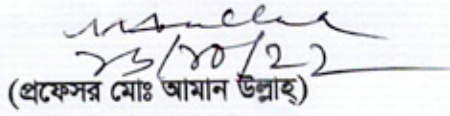 ২৬/১০/২২
(প্রফেসর মোঃ আমান উল্লাহ্)